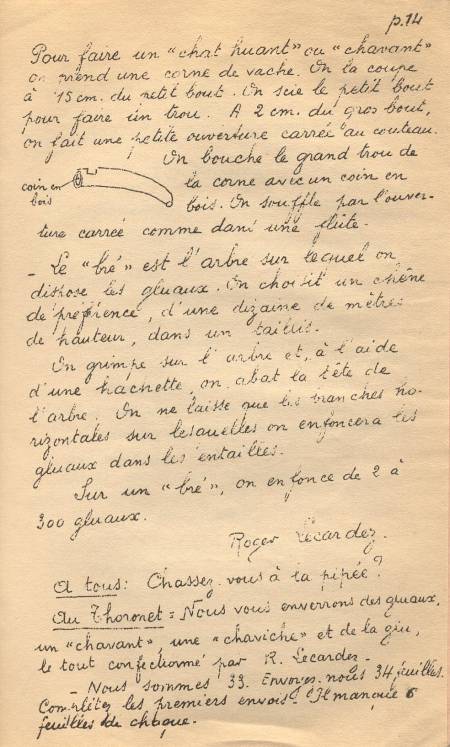 p.14
Pour faire un "chat huant" ou "chavant"
on prend une corne de vache. On la coupe
à 15 cm. du petit bout. On scie le petit bout
pour faire un trou. A 2 cm. du gros bout,
on fait une petite ouverture carrée au couteau.
On bouche le grand trou de
coin en
bois
la corne avec un coin en
bois. On souffle par l'ouver-
ture carrée comme dans une flûte.
- Le "bré" est l'arbre sur lequel on
dispose les gluaux. On choisit un chêne
de préférence, d'une dizaine de mètres
de hauteur, dans un taillis.
On grimpe sur l'arbre et, à l'aide
d'une hachette, on abat la tête de
l'arbre. On ne laisse que les branches ho-
rizontales sur lesquelles on enfoncera les
gluaux dans les entailles.
Sur un "bré", on enfonce de 2 à
300 gluaux.
Roger Lecardez.
A tous: Chassez vous à la pipée?
Au Thoronet = Nous vous enverrons des gluaux,
un "chavant", une "chaviche" et de la glu,
le tout confectionné par R. Lecardez -
- Nous sommes 33. Envoyez nous 34 feuilles.
Complétez les premiers envois - Il manque 6
feuilles de chaque.